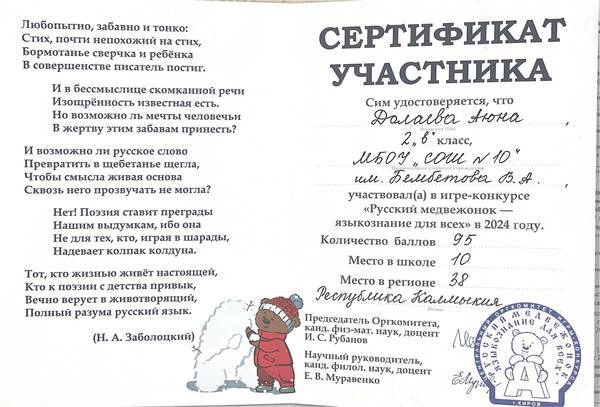 Любопытно, забавно и тонко:
Стих, почти непохожий на стих,
Бормотанье сверчка и ребёнка
В совершенстве писатель постиг.
И в бессмыслице скомканной речи
Изощрённость известная есть.
Но возможно ль мечты человечьи
В жертву этим забавам принесть?
И возможно ли русское слово
Превратить в щебетанье щегла,
Чтобы смысла живая основа
Сквозь него прозвучать не могла?
Нет! Поэзия ставит преграды
Нашим выдумкам, ибо она
Не для тех, кто, играя в шарады,
Надевает колпак колдуна.
Тот, кто жизнью живёт настоящей,
Кто к поэзии с детства привык,
Вечно верует в животворящий,
Полный разума русский язык.
(Н. А. Заболоцкий)
СЕРТИФИКАТ
УЧАСТНИКА
Сим удостоверяется, что
Долаева Аюна,
2 „в" класс,
МБОУ „СОШ №10"
им. Бембетова В.А.,
участвовал(а) в игре-конкурсе
«Русский медвежонок —
языкознание для всех» в 2024 году.
Количество баллов 95
Место в школе 10
Место в регионе 38
Республика Калмыкия
Регион
Председатель Оргкомитета,
канд. физ-мат. наук, доцент
И. С. Рубанов
Научный руководитель,
канд. филол. наук, доцент
Е. В. Муравенко
РУССКИЙ МЕДВЕЖОНОК
ЯЗЫКОЗНАНИЕ ДЛЯ ВСЕХ
г. КИРОВ